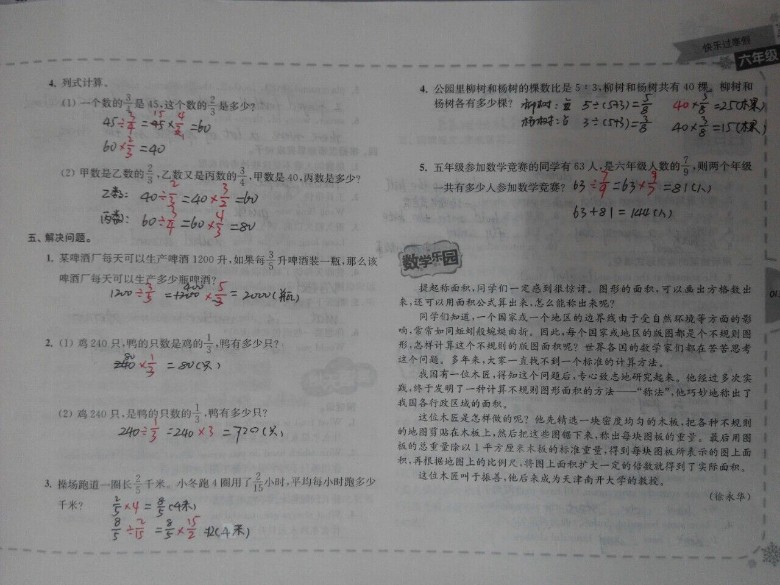 快乐过寒假
六年级
4. 列式计算。
(1) 一个数的3/4是45,这个数的2/3是多少?
45÷3/4=45×4/3=60
60×2/3=40
(2) 甲数是乙数的2/3,乙数又是丙数的3/4,甲数是40,丙数是多少?
乙数: 40÷2/3=40×3/2=60
丙数: 60÷3/4=60×4/3=80
五、解决问题。
1. 某啤酒厂每天可以生产啤酒1200升,如果每3/5升啤酒装一瓶,那么该
啤酒厂每天可以生产多少瓶啤酒?
1200÷3/5=1200×5/3=2000(瓶)
2. (1) 鸡240只,鸭的只数是鸡的1/3,鸭有多少只?
240×1/3=80(只)
(2) 鸡240只,是鸭的只数的1/3,鸭有多少只?
240÷1/3=240×3=720(只)
3. 操场跑道一圈长2/5千米。小冬跑4圈用了2/15小时,平均每小时跑多少
千米? 2/5×4=8/5(千米)
8/5÷2/15=8/5×15/2=12(千米)
4. 公园里柳树和杨树的棵数比是5:3,柳树和杨树共有40棵。柳树和
杨树各有多少棵? 柳树:占 5÷(5+3)=5/8 40×5/8=25(棵)
杨树:占 3÷(5+3)=3/8 40×3/8=15(棵)
5. 五年级参加数学竞赛的同学有63人,是六年级人数的7/9,则两个年级
一共有多少人参加数学竞赛? 63÷7/9=63×9/7=81(人)
63+81=144(人)
数学乐园
提起称面积,同学们一定感到很惊讶。图形的面积,可以画出方格数出
来,还可以用面积公式算出来,怎么能称出来呢?
同学们知道,一个国家或一个地区的边界线由于受自然环境等方面的影
响,常常如同蚯蚓般蜿蜒曲折。因此,每个国家或地区的版图都是个不规则图
形,怎样计算这个不规则的版图面积呢?世界各国的数学家们都在苦苦思考
这个问题。多年来,大家一直找不到一个标准的计算方法。
我国有一位木匠,得知这个问题后,专心致志地研究起来。他经过多次实
践,终于发明了一种计算不规则图形面积的方法——“称法”,他巧妙地称出了
我国各行政区域的面积。
这位木匠是怎样做的呢?他先精选一块密度均匀的木板,把各种不规则
的地图剪贴在木板上,然后把这些图锯下来,称出每块图板的重量。最后用图
板的总重量除以1平方厘米木板的标准重量,得到每块图板所表示的图上面
积,再根据地图上的比例尺,将图上面积扩大一定的倍数就得到了实际面积。
这位木匠叫于振善,他后来成为天津南开大学的教授。
(徐永华)